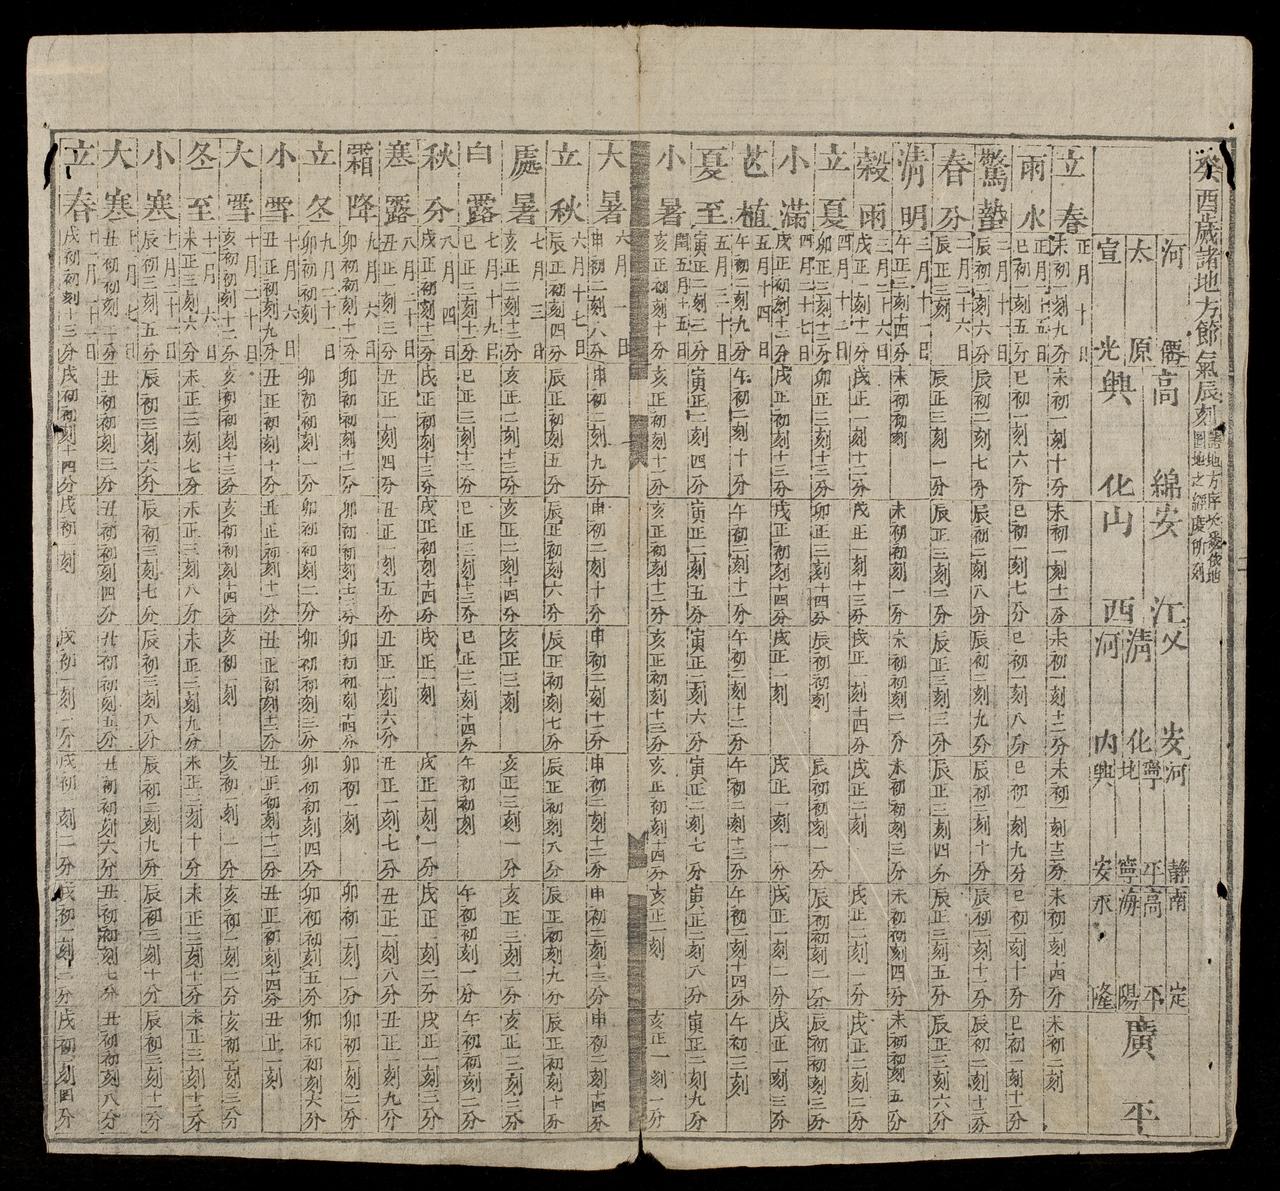 癸酉歲諸地方節氣辰刻 諸地方序次憑後地圖地之經度所列
河僊 太原 宣光
高綿 興化
安江 山西
乂安 清化 河內
河靜 寧平 北寧 興安
南定 高平 海陽 永隆
廣平
立春 正月十日 未初一刻九分 未初一刻十分 未初一刻十一分 未初一刻十二分 未初一刻十三分 未初一刻十四分 未初二刻
雨水 正月二十五日 巳初一刻五分 巳初一刻六分 巳初一刻七分 巳初一刻八分 巳初一刻九分 巳初一刻十分 巳初一刻十一分
驚蟄 二月十一日 辰初二刻六分 辰初二刻七分 辰初二刻八分 辰初二刻九分 辰初二刻十分 辰初二刻十一分 辰初二刻十二分
春分 二月二十六日 辰正三刻 辰正三刻一分 辰正三刻二分 辰正三刻三分 辰正三刻四分 辰正三刻五分 辰正三刻六分
清明 三月十一日 午正三刻十四分 未初初刻 未初初刻一分 未初初刻二分 未初初刻三分 未初初刻四分 未初初刻五分
穀雨 三月二十六日 戌正一刻十一分 戌正一刻十二分 戌正一刻十三分 戌正一刻十四分 戌正二刻 戌正二刻一分 戌正二刻二分
立夏 四月十二日 卯正三刻十二分 卯正三刻十三分 卯正三刻十四分 辰初初刻 辰初初刻一分 辰初初刻二分 辰初初刻三分
小滿 四月二十七日 戌正初刻十二分 戌正初刻十三分 戌正初刻十四分 戌正一刻 戌正一刻一分 戌正一刻二分 戌正一刻三分
芒植 五月十四日 午初二刻九分 午初二刻十分 午初二刻十一分 午初二刻十二分 午初二刻十三分 午初二刻十四分 午初三刻
夏至 五月三十日 寅正二刻三分 寅正二刻四分 寅正二刻五分 寅正二刻六分 寅正二刻七分 寅正二刻八分 寅正二刻九分
小暑 閏五月十五日 亥正初刻十分 亥正初刻十一分 亥正初刻十二分 亥正初刻十三分 亥正初刻十四分 亥正一刻 亥正一刻一分
大暑 六月一日 申初二刻八分 申初二刻九分 申初二刻十分 申初二刻十一分 申初二刻十二分 申初二刻十三分 申初二刻十四分
立秋 六月十七日 辰正初刻四分 辰正初刻五分 辰正初刻六分 辰正初刻七分 辰正初刻八分 辰正初刻九分 辰正初刻十分
處暑 七月三日 亥正二刻十二分 亥正二刻十三分 亥正二刻十四分 亥正三刻 亥正三刻一分 亥正三刻二分 亥正三刻三分
白露 七月十九日 巳正三刻十一分 巳正三刻十二分 巳正三刻十三分 巳正三刻十四分 午初初刻 午初初刻一分 午初初刻二分
秋分 八月四日 戌正初刻十二分 戌正初刻十三分 戌正初刻十四分 戌正一刻 戌正一刻一分 戌正一刻二分 戌正一刻三分
寒露 八月二十日 丑正一刻三分 丑正一刻四分 丑正一刻五分 丑正一刻六分 丑正一刻七分 丑正一刻八分 丑正一刻九分
霜降 九月六日 卯初初刻十一分 卯初初刻十二分 卯初初刻十三分 卯初初刻十四分 卯初一刻 卯初一刻一分 卯初一刻二分
立冬 九月二十一日 卯初初刻 卯初初刻一分 卯初初刻二分 卯初初刻三分 卯初初刻四分 卯初初刻五分 卯初初刻六分
小雪 十月六日 丑正初刻九分 丑正初刻十分 丑正初刻十一分 丑正初刻十二分 丑正初刻十三分 丑正初刻十四分 丑正一刻
大雪 十月二十日 亥初初刻十二分 亥初初刻十三分 亥初初刻十四分 亥初一刻 亥初一刻一分 亥初一刻二分 亥初一刻三分
冬至 十一月六日 未正三刻六分 未正三刻七分 未正三刻八分 未正三刻九分 未正三刻十分 未正三刻十一分 未正三刻十二分
小寒 十一月二十一日 辰初三刻五分 辰初三刻六分 辰初三刻七分 辰初三刻八分 辰初三刻九分 辰初三刻十分 辰初三刻十一分
大寒 十二月七日 丑初初刻二分 丑初初刻三分 丑初初刻四分 丑初初刻五分 丑初初刻六分 丑初初刻七分 丑初初刻八分
立春 十二月二十一日 戌初初刻十三分 戌初初刻十四分 戌初一刻 戌初一刻一分 戌初一刻二分 戌初一刻三分 戌初一刻四分